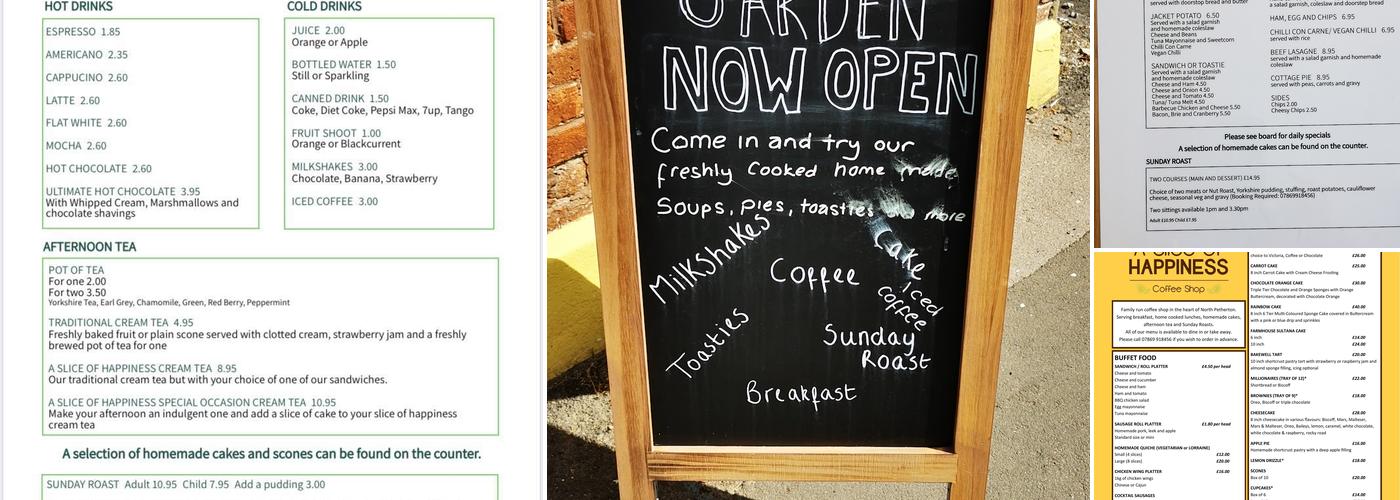 HOT DRINKS
ESPRESSO 1.85
AMERICANO 2.35
CAPPUCINO 2.60
LATTE 2.60
FLAT WHITE 2.60
MOCHA 2.60
HOT CHOCOLATE 2.60
ULTIMATE HOT CHOCOLATE 3.95
With Whipped Cream, Marshmallows and
chocolate shavings
COLD DRINKS
JUICE 2.00
Orange or Apple
BOTTLED WATER 1.50
Still or Sparkling
CANNED DRINK 1.50
Coke, Diet Coke, Pepsi Max, 7up, Tango
FRUIT SHOOT 1.00
Orange or Blackcurrent
MILKSHAKES 3.00
Chocolate, Banana, Strawberry
ICED COFFEE 3.00
AFTERNOON TEA
POT OF TEA
For one 2.00
For two 3.50
Yorkshire Tea, Earl Grey, Chamomile, Green, Red Berry, Peppermint
TRADITIONAL CREAM TEA 4.95
Freshly baked fruit or plain scone served with clotted cream, strawberry jam and a freshly
brewed pot of tea for one
A SLICE OF HAPPINESS CREAM TEA 8.95
Our traditional cream tea but with your choice of one of our sandwiches.
A SLICE OF HAPPINESS SPECIAL OCCASION CREAM TEA 10.95
Make your afternoon an indulgent one and add a slice of cake to your slice of happiness
cream tea
A selection of homemade cakes and scones can be found on the counter.
SUNDAY ROAST Adult 10.95 Child 7.95 Add a pudding 3.00
GARDEN
NOW OPEN
Come in and try our
freshly cooked home made
Soups, pies, toasties more
Milkshakes
Cake
Coffee
iced
coffee
Toasties
Sunday
Roast
Breakfast
served with doorstop bread and butter
JACKET POTATO 6.50
Served with a salad garnish
and homemade coleslaw
Cheese and Beans
Tuna Mayonnaise and Sweetcorn
Chilli Con Carne
Vegan Chilli
SANDWICH OR TOASTIE
Served with a salad garnish
and homemade coleslaw
Cheese and Ham 4.50
Cheese and Onion 4.50
Cheese and Tomato 4.50
Tuna/ Tuna Melt 4.50
Barbecue Chicken and Cheese 5.50
Bacon, Brie and Cranberry 5.50
a salad garnish, coleslaw and doorstep bread
HAM, EGG AND CHIPS 6.95
CHILLI CON CARNE/ VEGAN CHILLI 6.95
served with rice
BEEF LASAGNE 8.95
served with a salad garnish and homemade
coleslaw
COTTAGE PIE 8.95
served with peas, carrots and gravy
SIDES
Chips 2.00
Cheesy Chips 2.50
Please see board for daily specials
A selection of homemade cakes can be found on the counter.
SUNDAY ROAST
TWO COURSES (MAIN AND DESSERT) £14.95
Choice of two meats or Nut Roast, Yorkshire pudding, stuffing, roast potatoes, cauliflower
cheese, seasonal veg and gravy (Booking Required: 07869918456)
Two sittings available 1pm and 3.30pm
Adult £10.95 Child £7.95
A SLICE OF
HAPPINESS
Coffee Shop
Family run coffee shop in the heart of North Petherton.
Serving breakfast, home cooked lunches, homemade cakes,
afternoon tea and Sunday Roasts.
All of our menu is available to dine in or take away.
Please call 07869 918456 if you wish to order in advance.
BUFFET FOOD
SANDWICH / ROLL PLATTER £4.50 per head
Cheese and tomato
Cheese and cucumber
Cheese and ham
Ham and tomato
BBQ chicken salad
Egg mayonnaise
Tuna mayonnaise
SAUSAGE ROLL PLATTER £1.80 per head
Homemade pork, leek and apple
Standard size or mini
HOMEMADE QUICHE (VEGETARIAN or LORRAINE)
Small (4 slices) £12.00
Large (8 slices) £20.00
CHICKEN WING PLATTER £16.00
1kg of chicken wings
Chinese or Cajun
COCKTAIL SAUSAGES
choice to Victoria, Coffee or Chocolate £26.00
CARROT CAKE £25.00
8 inch Carrot Cake with Cream Cheese Frosting
CHOCOLATE ORANGE CAKE £30.00
Triple Tier Chocolate and Orange Sponges with Orange
Buttercream, decorated with Chocolate Orange
RAINBOW CAKE £40.00
8 inch 6 Tier Multi-Coloured Sponge Cake covered in Buttercream
with a pink or blue drip and sprinkles
FARMHOUSE SULTANA CAKE
6 inch £14.00
10 inch £24.00
BAKEWELL TART £20.00
10 inch shortcrust pastry tart with strawberry or raspberry jam and
almond sponge filling, icing optional
MILLIONAIRES (TRAY OF 12)* £22.00
Shortbread or Biscoff
BROWNIES (TRAY OF 9)* £18.00
Oreo, Biscoff or triple chocolate
CHEESECAKE £28.00
8 inch cheesecake in various flavours: Biscoff, Mars, Malteser,
Mars & Malteser, Oreo, Baileys, lemon, caramel, white chocolate,
white chocolate & raspberry, rocky road
APPLE PIE £16.00
Homemade shortcrust pastry with a deep apple filling
LEMON DRIZZLE* £18.00
SCONES
Box of 10 £20.00
CUPCAKES*
Box of 6 £14.00